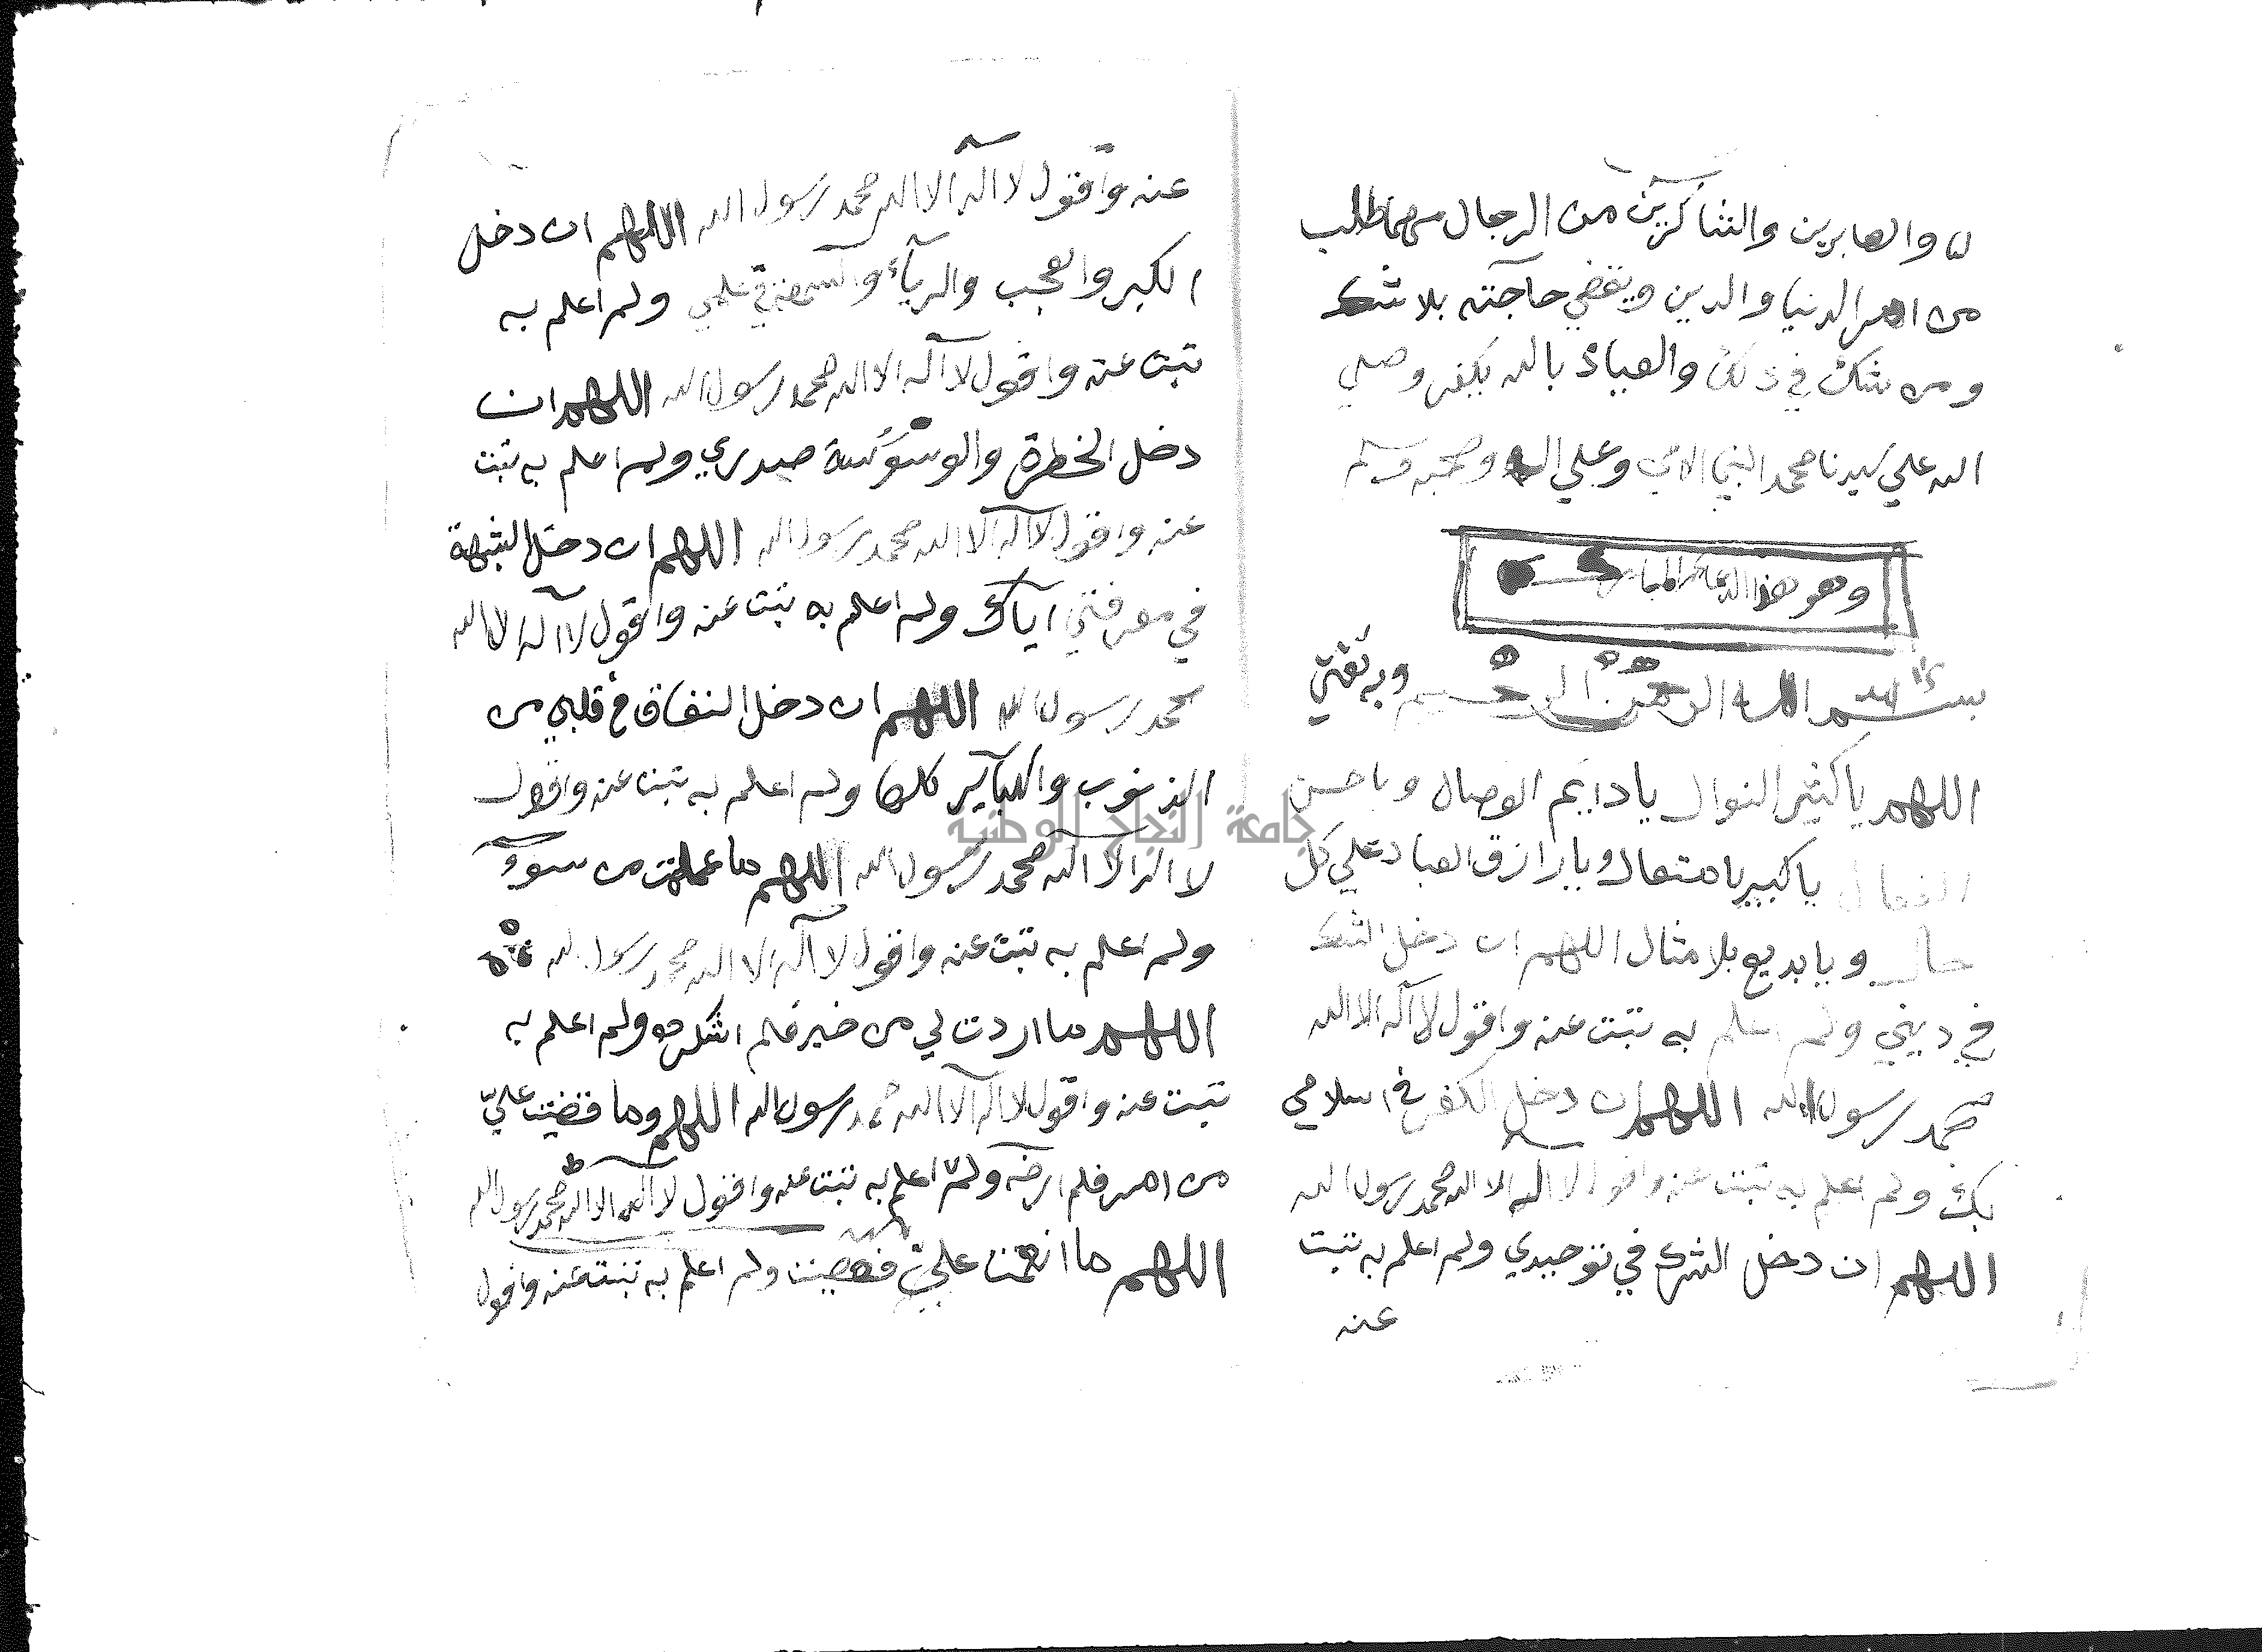 والصابرين والشاكرين من الرجال مهما طلب
من امر الدنيا والدين ويقضي حاجته بلا شك
ومن شك في ذلك والعياذ بالله يكفر وصلي
الله علي سيدنا محمد النبي الامي وعلي اله وصحبه وسلم
وهو هذا الدعاء المبارك
بسم الله الرحمن الرحيم وبه ثقتي
اللهم يا كثير النوال يا دايم الوصال ويا حسن
الفعال يا كبير يا متعال ويا رازق العباد علي كل
حال ويا بديع بلا مثال اللهم ان دخل الشك
في ديني ولم اعلم به تبت عنه واقول لا آله الا الله
محمد رسول الله اللهم ان دخل الكفر في اسلامي
بك ولم اعلم به تبت عنه واقول لا اله الا الله محمد رسول الله
اللهم ان دخل الشرك في توحيدي ولم اعلم به تبت
عنه
عنه واقول لا آله الا الله محمد رسول الله اللهم ان دخل
الكبر والعجب والريآء والسمعة في علمي ولم اعلم به
تبت عنه واقول لا آله الا الله محمد رسول الله اللهم ان
دخل الخطرة والوسوسة صدري ولم اعلم به تبت
عنه واقول لا آله الا الله محمد رسول الله اللهم ان دخل الشبهة
في معرفتي اياك ولم اعلم به تبت عنه واقول لا آله الا الله
محمد رسول الله اللهم ان دخل النفاق في قلبي من
الذنوب والكبآير كلها ولم اعلم به تبت عنه واقول
لا اله الا الله محمد رسول الله اللهم ما عملت من سوٓء
ولم اعلم به تبت عنه واقول لا آله الا الله محمد رسول الله
اللهم ما اردت لي من خير فلم اشكره ولم اعلم به
تبت عنه واقول لا اله الا الله محمد رسول الله اللهم وما قضيت عليّ
من امر فلم ارضه ولم اعلم به تبت عنه واقول لا اله الا الله محمد رسول الله
اللهم ما انعمت علي فعصيت ولم اعلم به تبت عنه واقول
جامعة النجاح الوطنية